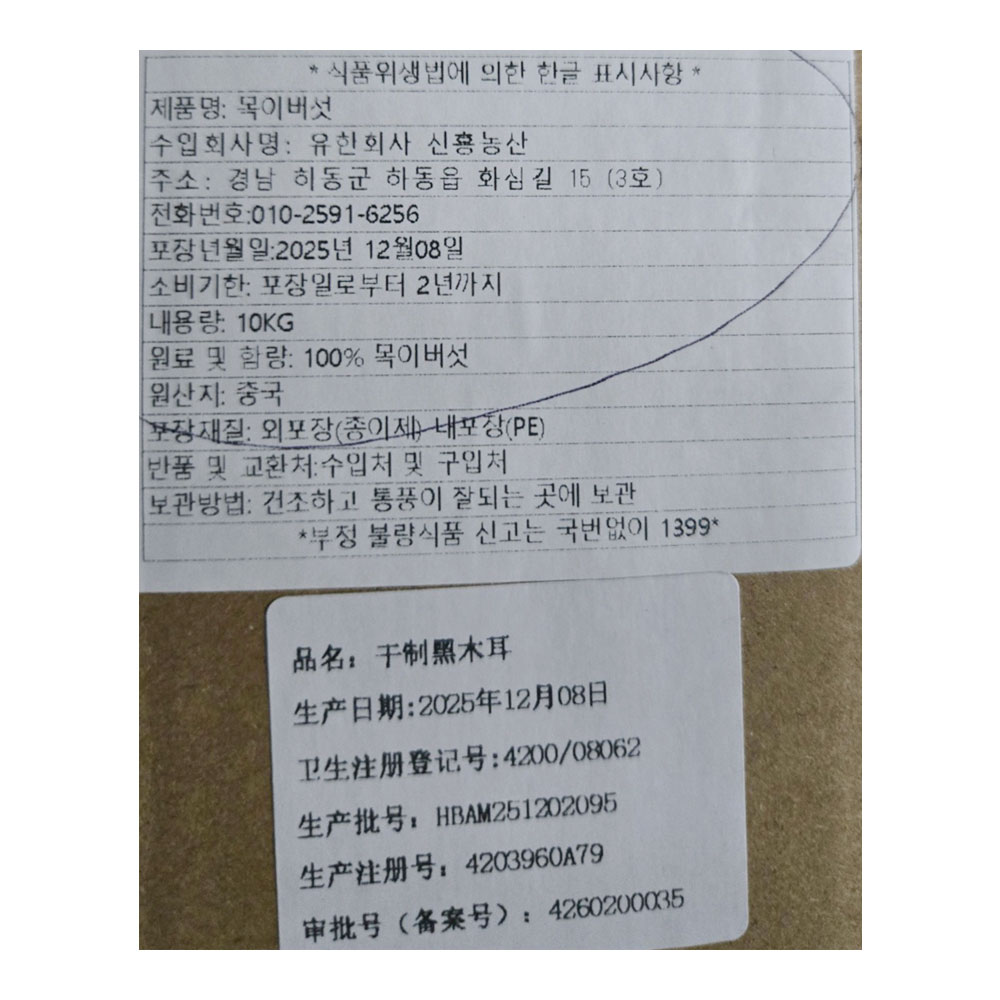 * 식품위생법에 의한 한글 표시사항 *
제품명: 목이버섯
수입회사명: 유한회사 신흥농산
주소: 경남 하동군 하동읍 화심길 15 (3호)
전화번호:010-2591-6256
포장년월일:2025년 12월08일
소비기한: 포장일로부터 2년까지
내용량: 10KG
원료 및 함량: 100% 목이버섯
원산지: 중국
포장재질: 외포장(종이제) 내포장(PE)
반품 및 교환처:수입처 및 구입처
보관방법: 건조하고 통풍이 잘되는 곳에 보관
*부정 불량식품 신고는 국번없이 1399*
品名：干制黑木耳
生产日期:2025年12月08日
卫生注册登记号:4200/08062
生产批号：HBAM251202095
生产注册号：4203960A79
审批号（备案号）：4260200035